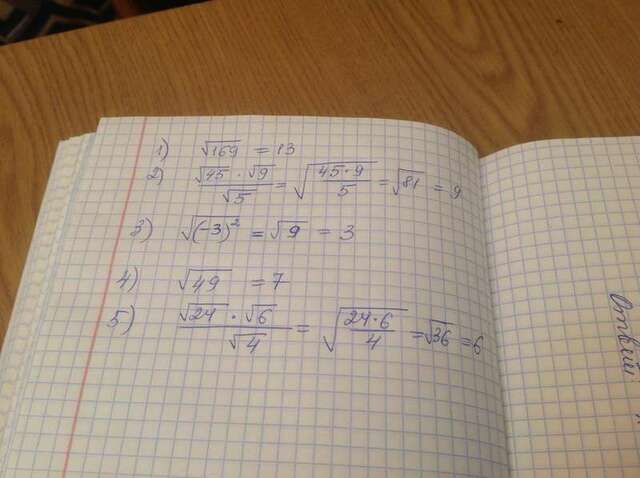 1) √169 = 13
2) (√45 · √9)/√5 = √((45·9)/5) = √81 = 9
3) √(-3)² = √9 = 3
4) √49 = 7
5) (√24 · √6)/√4 = √((24·6)/4) = √36 = 6